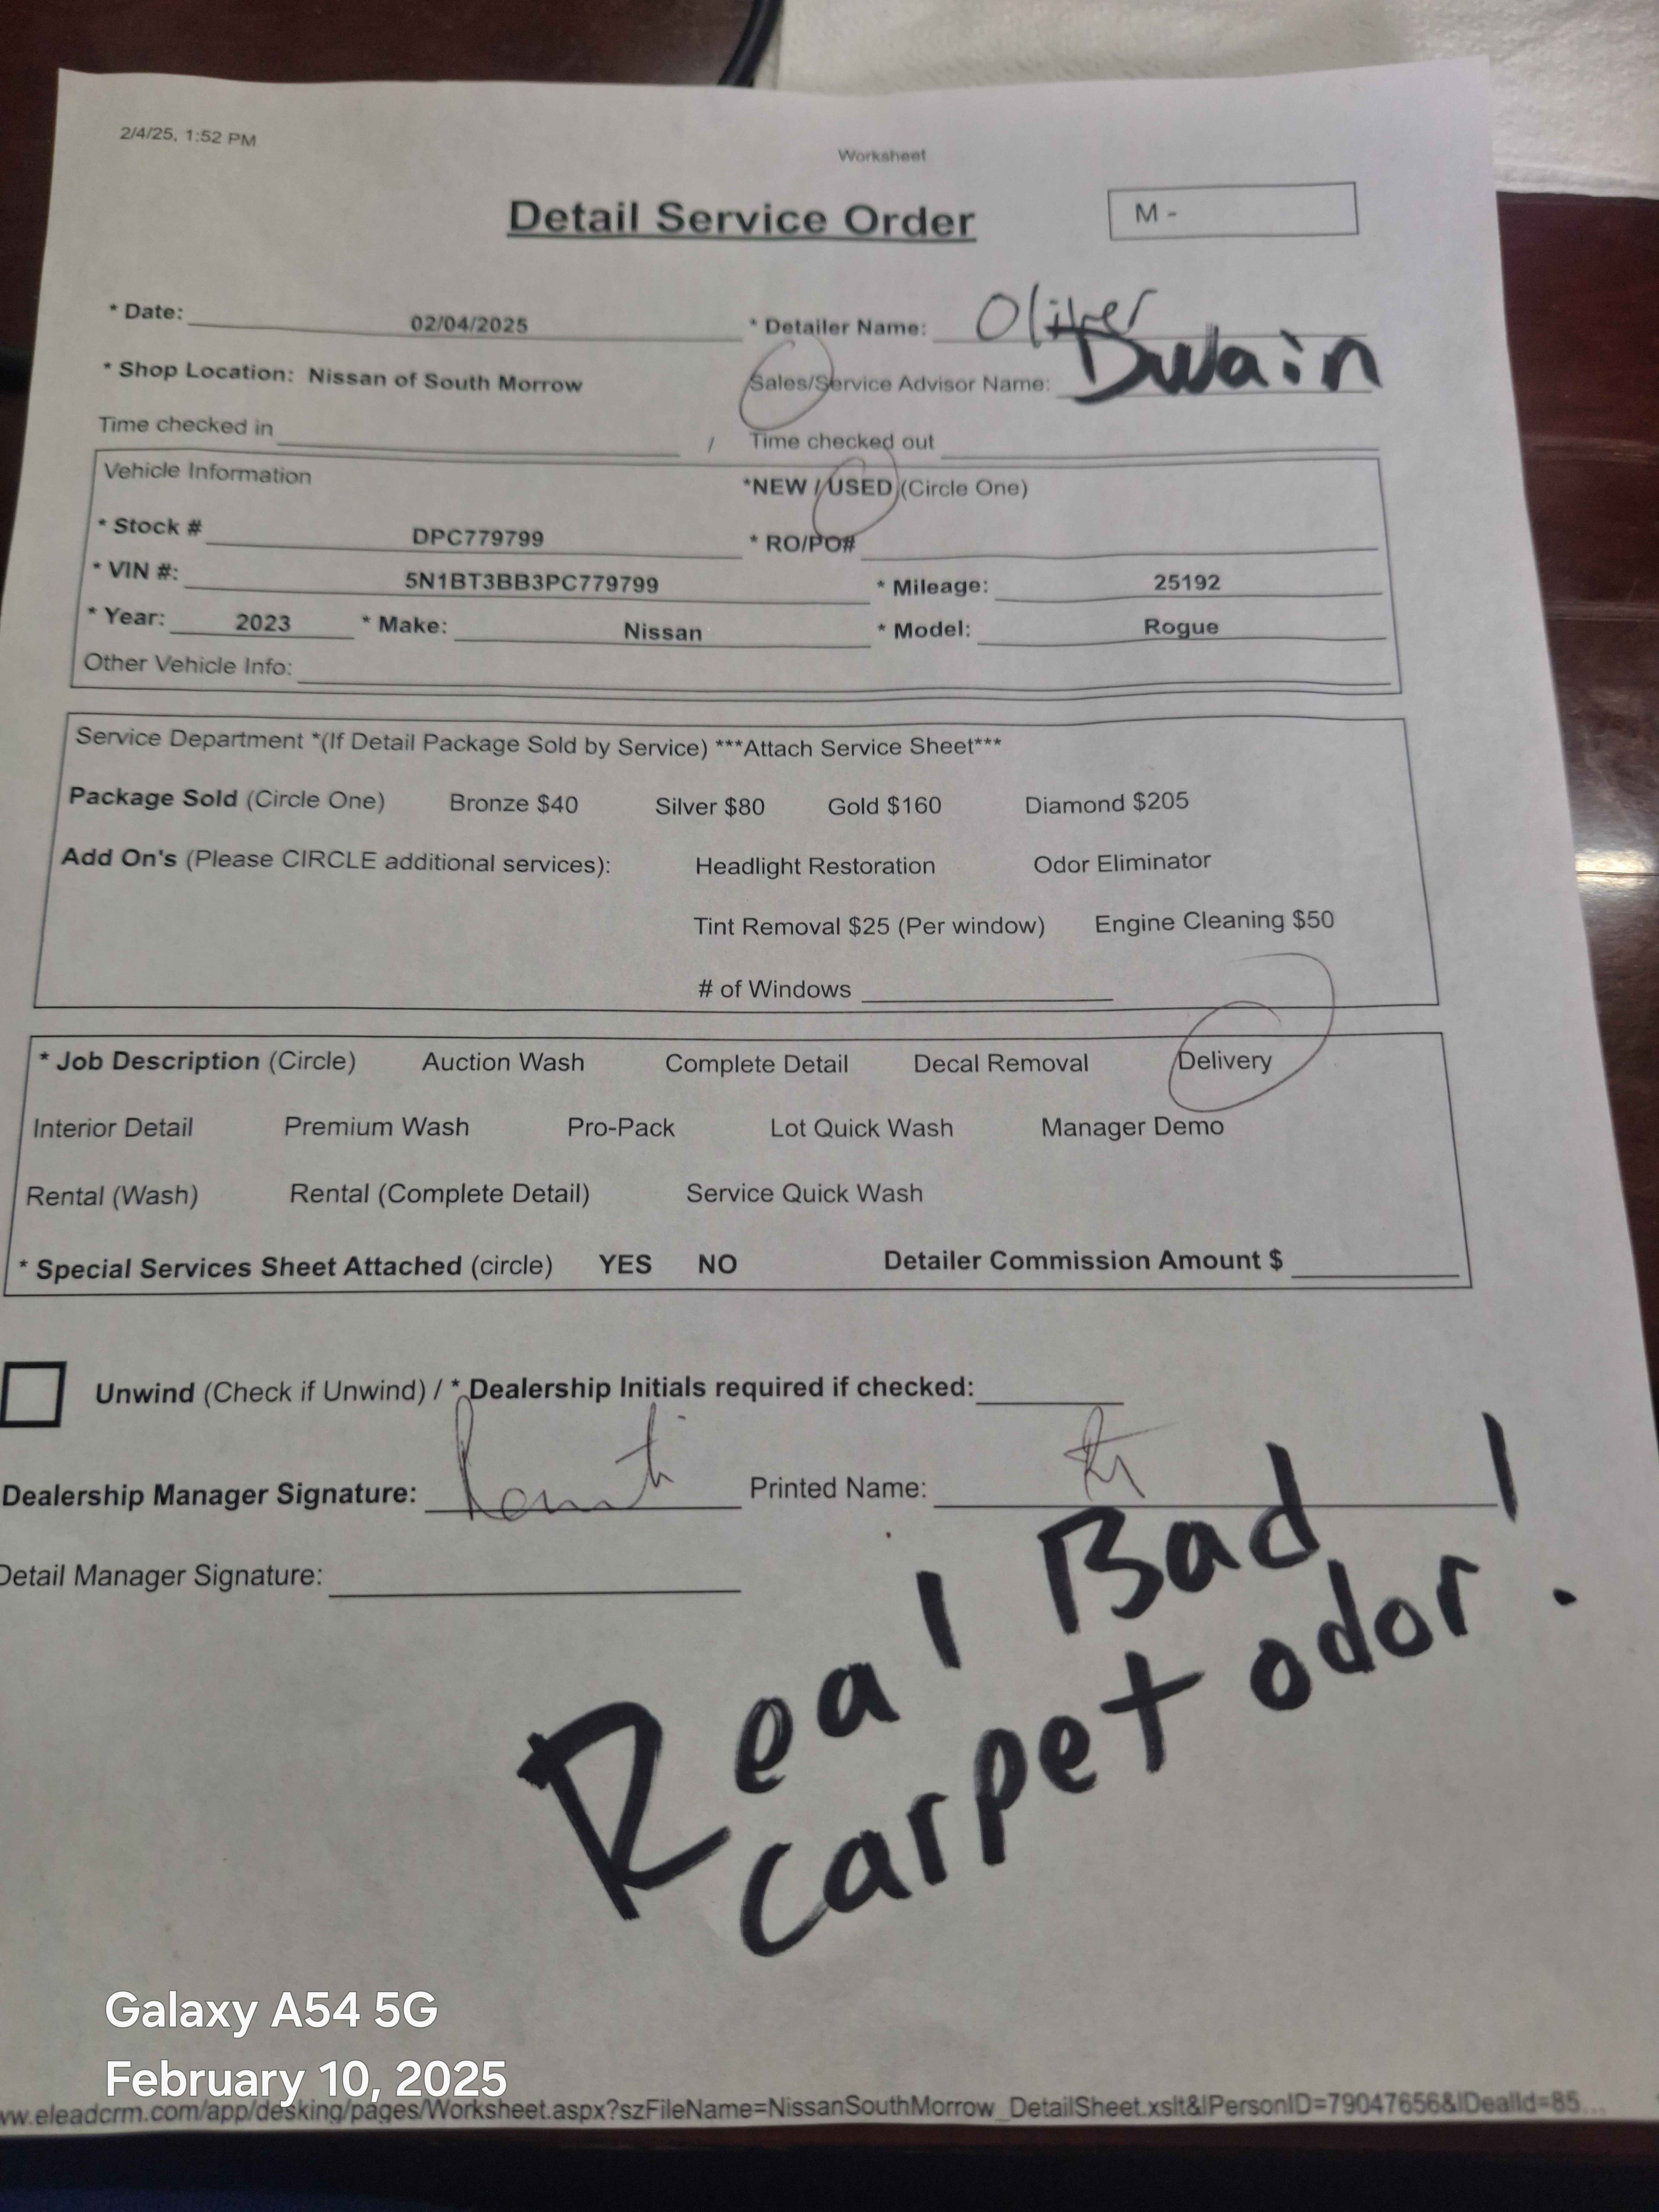 2/4/25, 1:52 PM
Worksheet
Detail Service Order
M -
* Date: 02/04/2025 * Detailer Name: Oliver
* Shop Location: Nissan of South Morrow Sales/Service Advisor Name: Dwain
Time checked in / Time checked out
Vehicle Information *NEW / USED (Circle One)
* Stock # DPC779799 * RO/PO#
* VIN #: 5N1BT3BB3PC779799 * Mileage: 25192
* Year: 2023 * Make: Nissan * Model: Rogue
Other Vehicle Info:
Service Department *(If Detail Package Sold by Service) ***Attach Service Sheet***
Package Sold (Circle One) Bronze $40 Silver $80 Gold $160 Diamond $205
Add On's (Please CIRCLE additional services): Headlight Restoration Odor Eliminator
Tint Removal $25 (Per window) Engine Cleaning $50
# of Windows
* Job Description (Circle) Auction Wash Complete Detail Decal Removal Delivery
Interior Detail Premium Wash Pro-Pack Lot Quick Wash Manager Demo
Rental (Wash) Rental (Complete Detail) Service Quick Wash
* Special Services Sheet Attached (circle) YES NO Detailer Commission Amount $
Unwind (Check if Unwind) / * Dealership Initials required if checked:
Dealership Manager Signature: Printed Name:
Detail Manager Signature:
Real Bad
carpet odor!
Galaxy A54 5G
February 10, 2025
ww.eleadcrm.com/app/desking/pages/Worksheet.aspx?szFileName=NissanSouthMorrow_DetailSheet.xslt&lPersonID=79047656&lDealId=85...